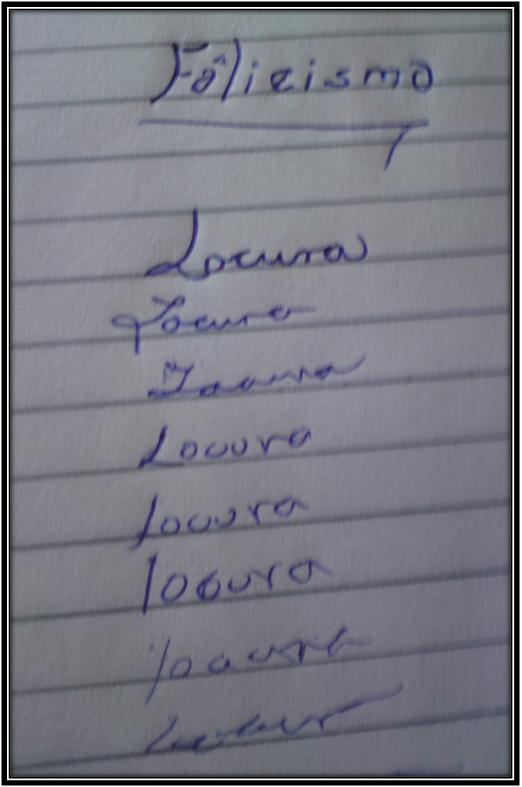 Fôlieismo
Locura
Locura
Locura
Locura
locura
locura
locura